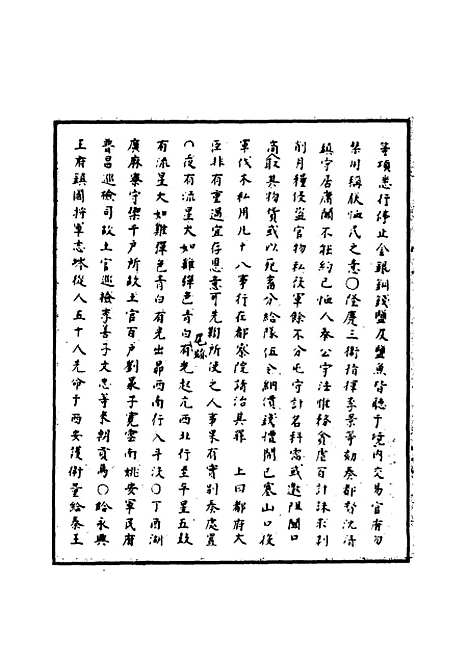 等項悉行停止金銀銅錢鹽及鹽魚皆聽于境內交易官府勿
禁用稱朕恤民之意○隆慶三衛指揮李景等劾奏都督沈清
鎮守居庸關不能約己恤人奉公守法惟務貪虐百計誅求剋
削月糧侵盜官物私役軍餘不分屯守計名科需或邀阻關口
高取其物貨或以死畜分給隊伍令納價錢慣開已塞山口役
軍伐木私用凡十八事行在都察院請治其罪　上曰都府大
臣非有重過宜存恩意可先鞫所使之人事果有實別奏處置
○夜有流星大如雞彈色青白有光起亢西北行至平星五鼓
尾跡
有流星大如雞彈色青白有光出昴西南行入平沒○丁酉湖
廣麻寮守禦千戶所故土官百戶劉冕子寬雲南姚安軍民府
普昌巡檢司故土官巡檢李善子文忠等來朝貢馬○給永興
王府鎮國將軍志 從人五十人先命于西安護衛量給秦王